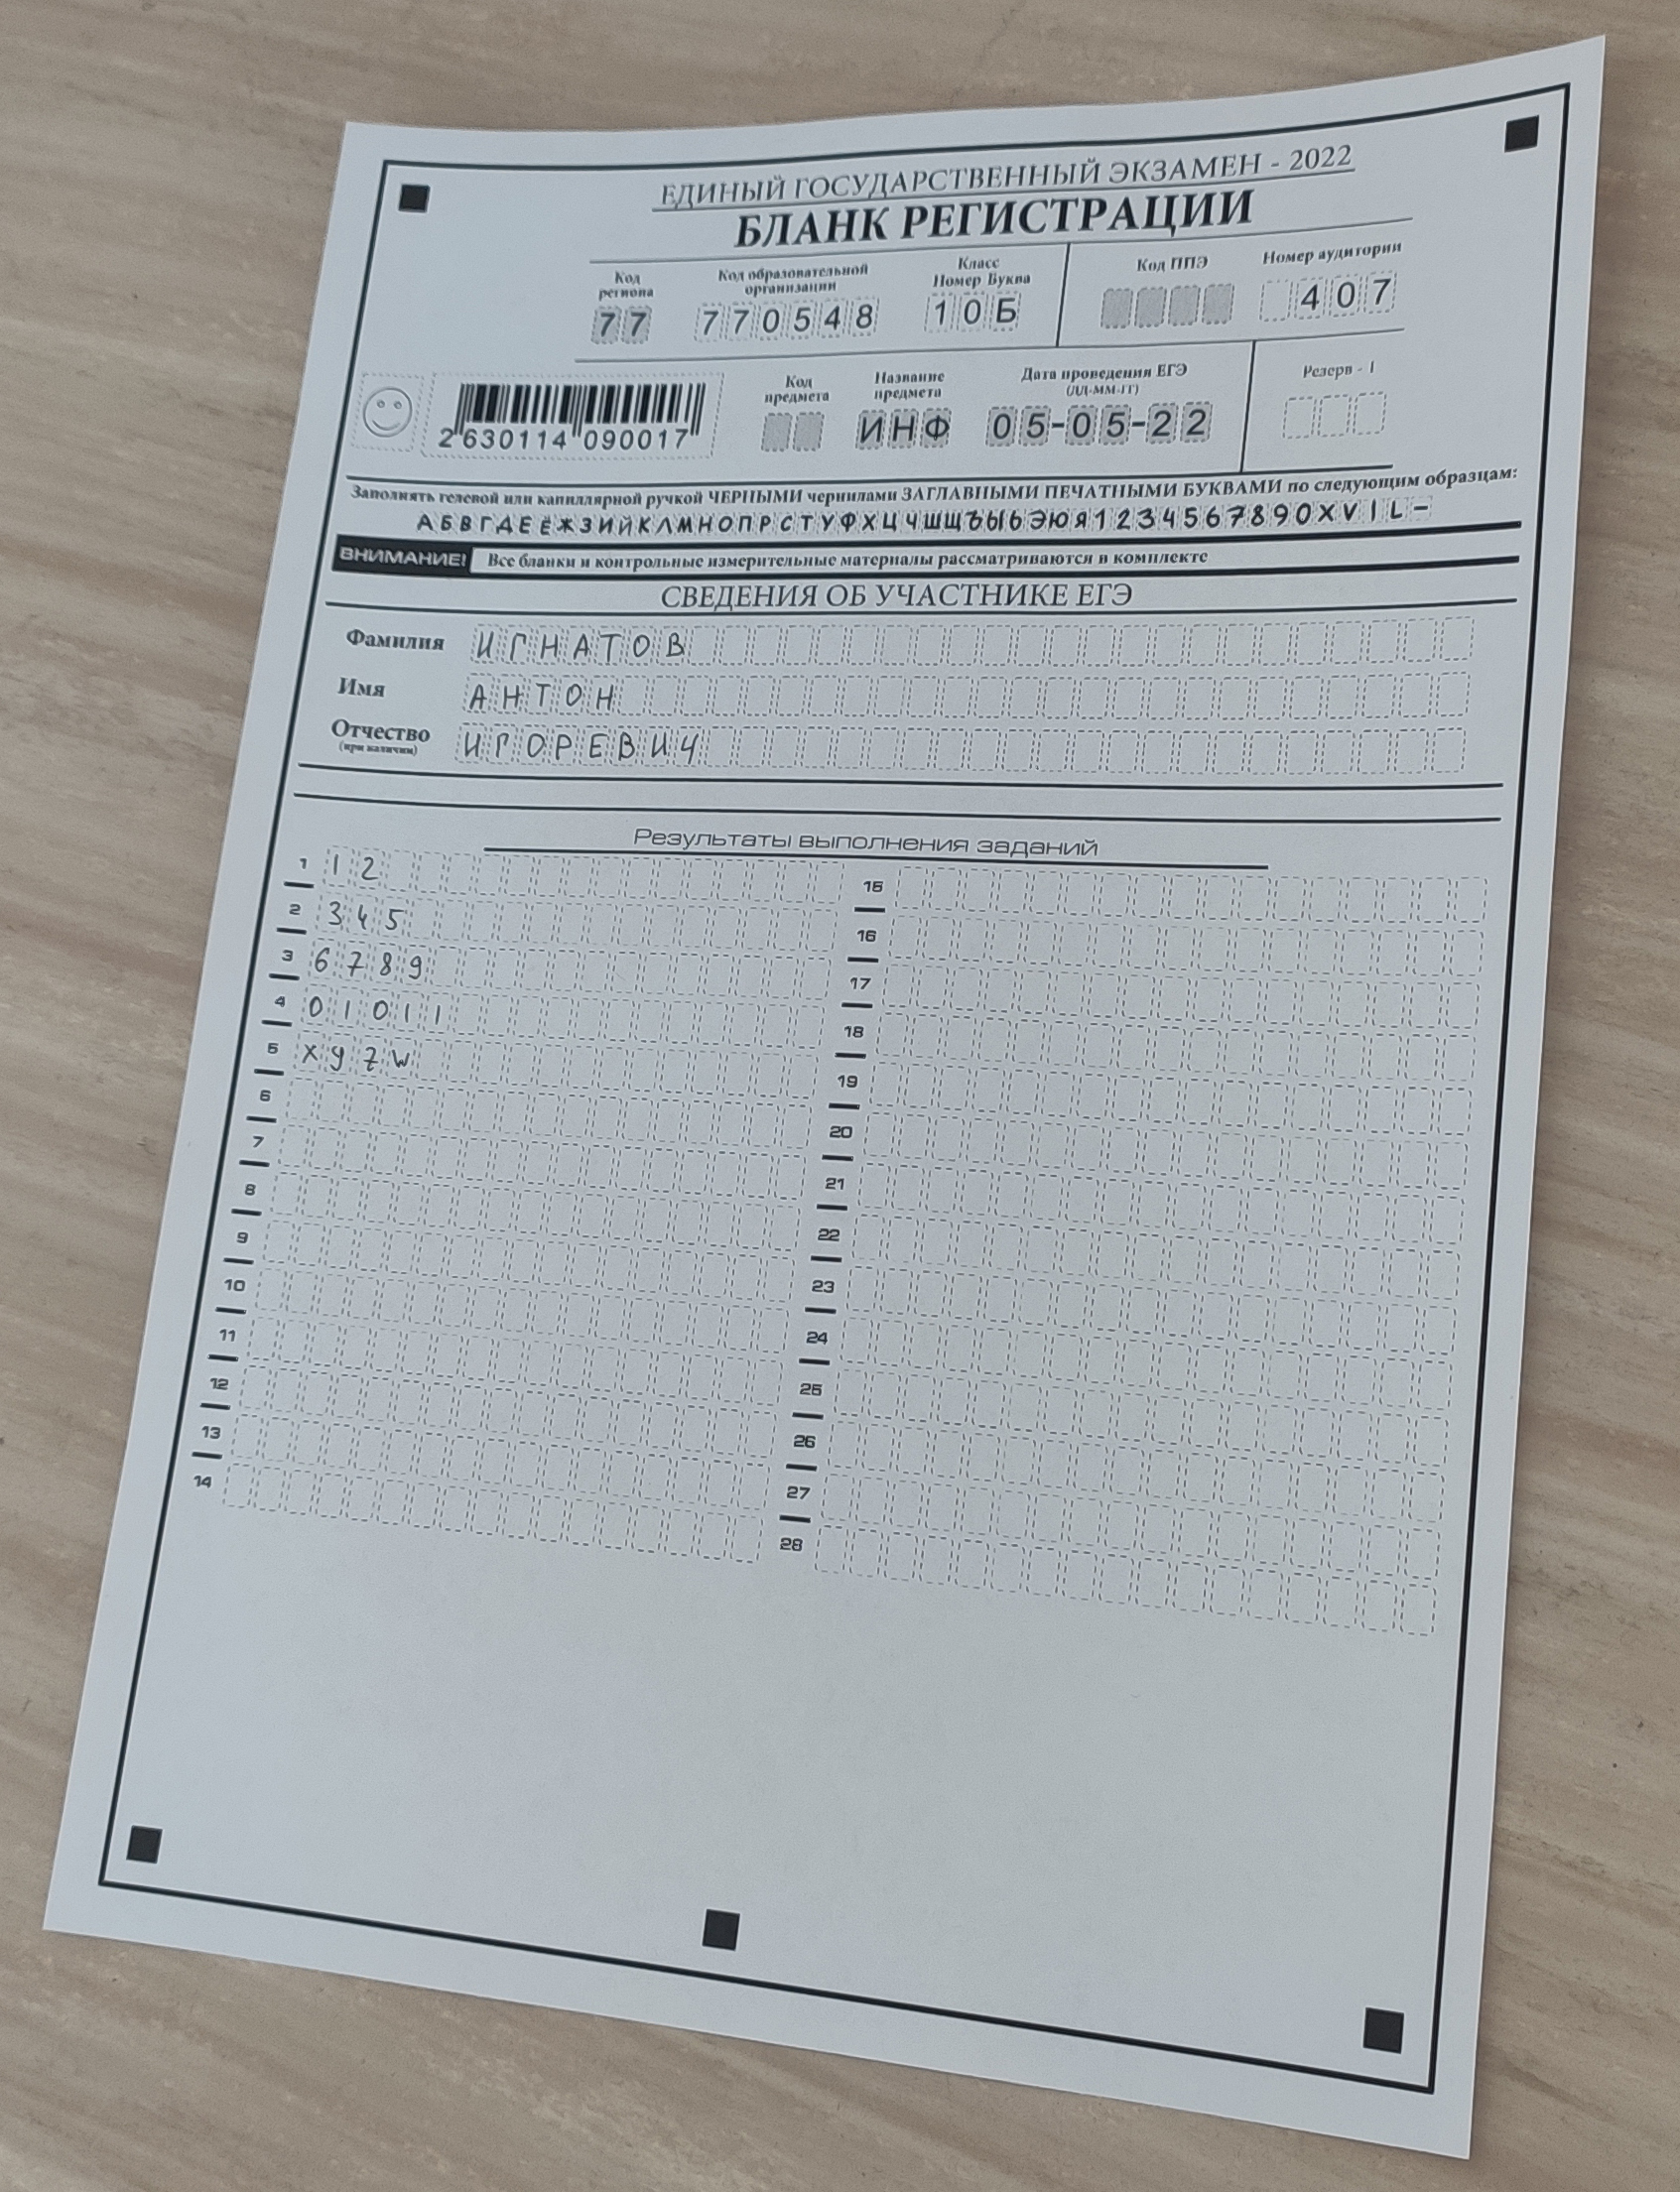 ЕДИНЫЙ ГОСУДАРСТВЕННЫЙ ЭКЗАМЕН - 2022
БЛАНК РЕГИСТРАЦИИ
Код региона Код образовательной организации Класс Номер Буква Код ППЭ Номер аудитории
77 770548 10Б 407
Код предмета Название предмета Дата проведения ЕГЭ (ДД-ММ-ГГ) Резерв - 1
ИНФ 05-05-22
2 630114 090017
Заполнять гелевой или капиллярной ручкой ЧЕРНЫМИ чернилами ЗАГЛАВНЫМИ ПЕЧАТНЫМИ БУКВАМИ по следующим образцам:
АБВГДЕЁЖЗИЙКЛМНОПРСТУФХЦЧШЩЪЫЬЭЮЯ1234567890XVIL-
ВНИМАНИЕ! Все бланки и контрольные измерительные материалы рассматриваются в комплекте
СВЕДЕНИЯ ОБ УЧАСТНИКЕ ЕГЭ
Фамилия ИГНАТОВ
Имя АНТОН
Отчество ИГОРЕВИЧ
(при наличии)
Результаты выполнения заданий
1 12
2 345
3 6789
4 01011
5 xyzw
6
7
8
9
10
11
12
13
14
15
16
17
18
19
20
21
22
23
24
25
26
27
28